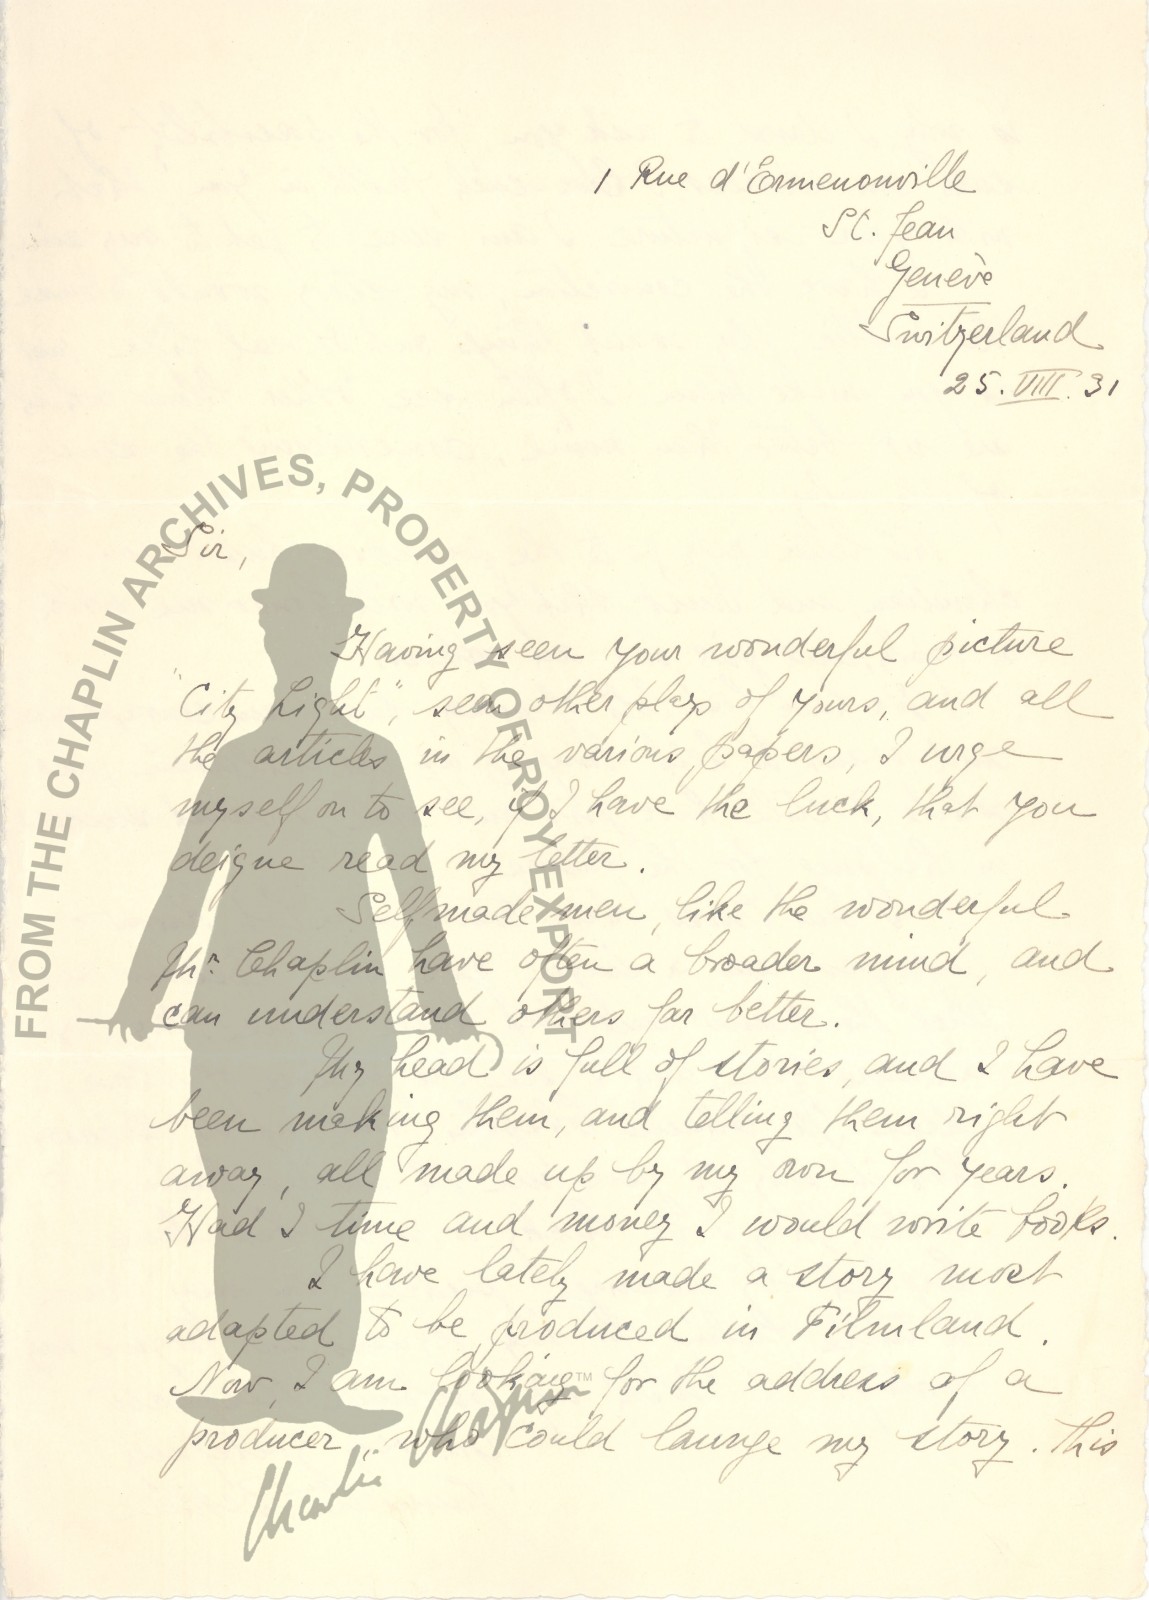 1 Rue d'Ermenonville
St. Jean
Genève
Switzerland
25. VIII. 31
FROM THE CHAPLIN ARCHIVES, PROPERTY OF ROY EXPORT
Sir,
Having seen your wonderful picture
"City Light", seen other plays of yours, and all
the articles in the various papers, I urge
myself on to see, if I have the luck, that you
deigne read my letter.
Selfmade men, like the wonderful
Mr. Chaplin have often a broader mind, and
can understand others far better.
My head is full of stories, and I have
been making them, and telling them right
away, all made up by my own for years.
Had I time and money I would write books.
I have lately made a story most
adapted to be produced in Filmland.
Now, I am looking for the address of a
producer, who could launge my story. This
Charlie Chaplin TM